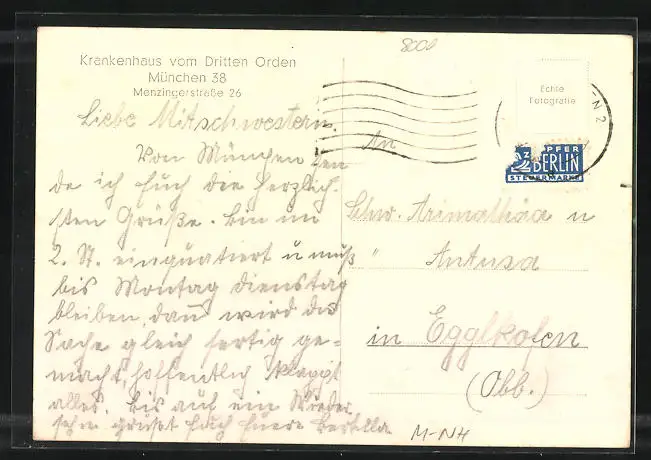 8001
Krankenhaus vom Dritten Orden
München 38
Menzingerstraße 26
Echte
Fotografie
N 2
NOTOPFER
2 BERLIN
STEUERMARKE
Liebe Mitschwestern.
Von München sen
de ich Euch die herzlich-
sten Grüße. Bin im
2. St. einquatiert u muß
bis Montag Dienstag
bleiben, dann wird die
Sache gleich fertig ge=
macht, hoffentlich klappt
alles. Bis auf ein Wieder
sehn grüßt Euch Euere Bertilla
An
Schw. Arimathäa u
" Antusa
in Egglkofen
(Obb.)
M-NH